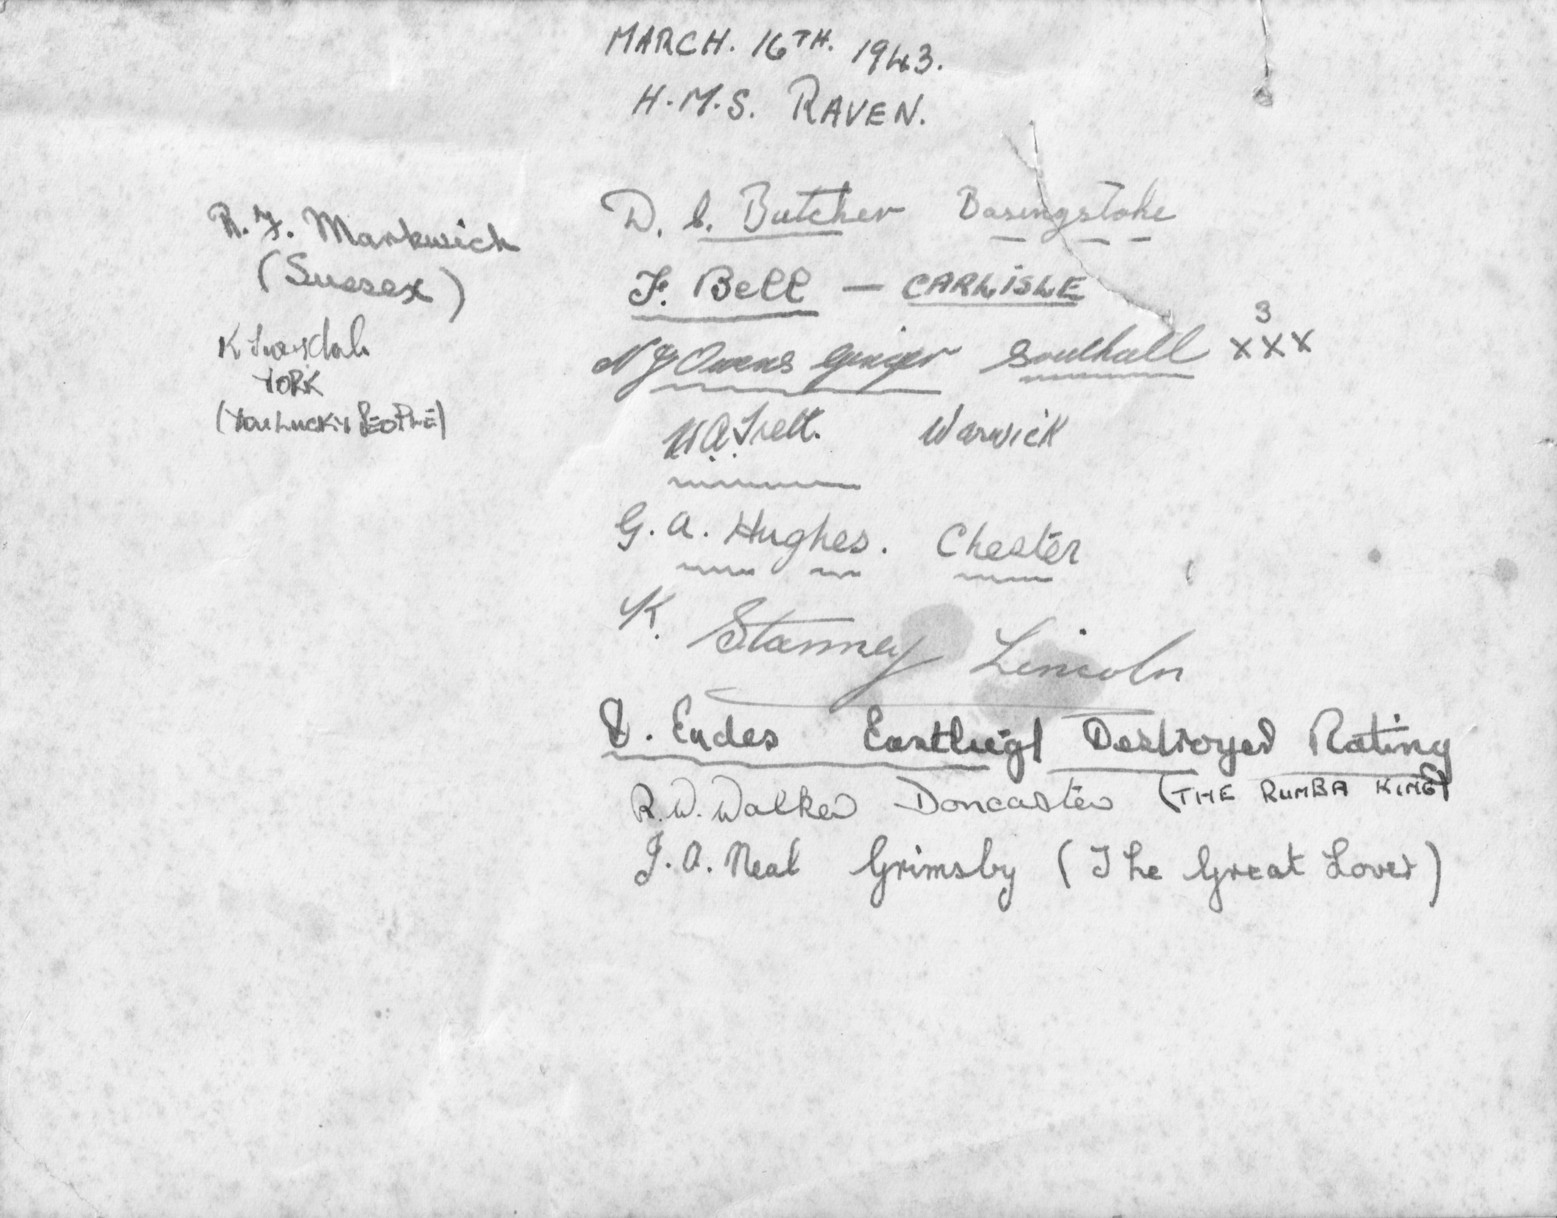 MARCH. 16TH. 1943.
H.M.S. RAVEN.
D. C. Butcher Basingstoke
F. Bell — CARLISLE
N J Owens Ginger Southall XXX
3
Trett. Warwick
G. A. Hughes. Chester
K. Stanney Lincoln
Eudes Eastleigh Destroyed Rating
R. W. Walker Doncaster (THE RUMBA KING)
J. A. Neal Grimsby (The Great Lover)
R. F. Markwick
(Sussex)
K
YORK
(YOU LUCKY PEOPLE)